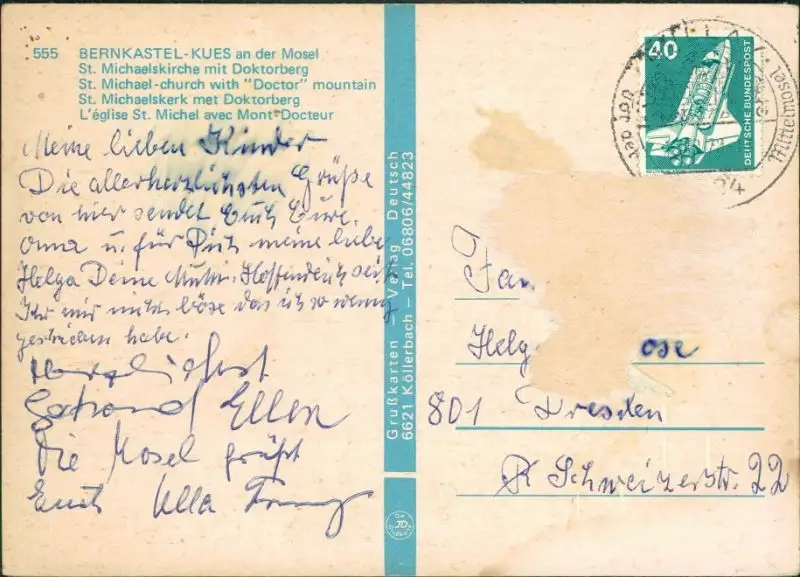 555 BERNKASTEL-KUES an der Mosel
St. Michaelskirche mit Doktorberg
St. Michael-church with "Doctor" mountain
St. Michaelskerk met Doktorberg
L'église St. Michel avec Mont-Docteur
Meine lieben Kinder
Die allerherzlichsten Grüße
von hier sendet Euch Eure
Oma u. für Dich meine liebe
Helga Deine Mutti. Hoffendlich seit
Ihr mir nicht böse das ich so wenig
geschrieben habe.
Herzlichst
Ellen
Die Mosel grüßt
Euch Ulla
Grußkarten – Verlag Deutsch
6621 Köllerbach – Tel. 06806/44823
JD
40
DEUTSCHE BUNDESPOST
Mittelmosel
Fam
Helg ose
801 Dresden
Schweizerstr. 22